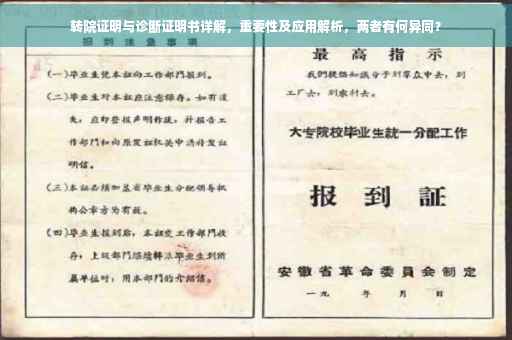 转院证明与诊断证明书详解，重要性及应用解析，两者有何异同？
报到注意事项
(一)毕业生凭本证向工作部门报到。
(二)毕业生对本证应注意保存。如有遗
失，应即登报声明作废，并报告工
作部门和向原发证机关申请补发证
明信。
(三)本证必须加盖省毕业生分配领导机
构公章方为有效。
(四)毕业生报到后，本证交工作部门收
存，上级部门继续转派毕业生到所
属单位时，用本部门的介绍信。
最高指示
我们提倡知识分子到群众中去，到
工厂去，到农村去。
大专院校毕业生统一分配工作
报到证
安徽省革命委员会制定
一九 年 月 日